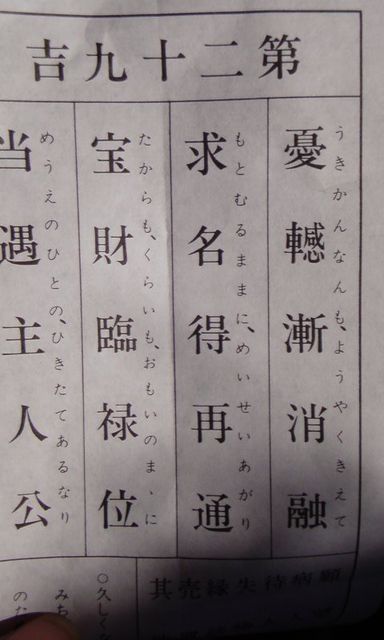 第二十九吉
憂轗漸消融
うきかんなんも、ようやくきえて
求名得再通
もとむるままに、めいせいあがり
宝財臨禄位
たからも、くらいも、おもいのまゝに
当遇主人公
めうえのひとの、ひきたてあるなり
願病待失縁売其
○久しく
みち
のた